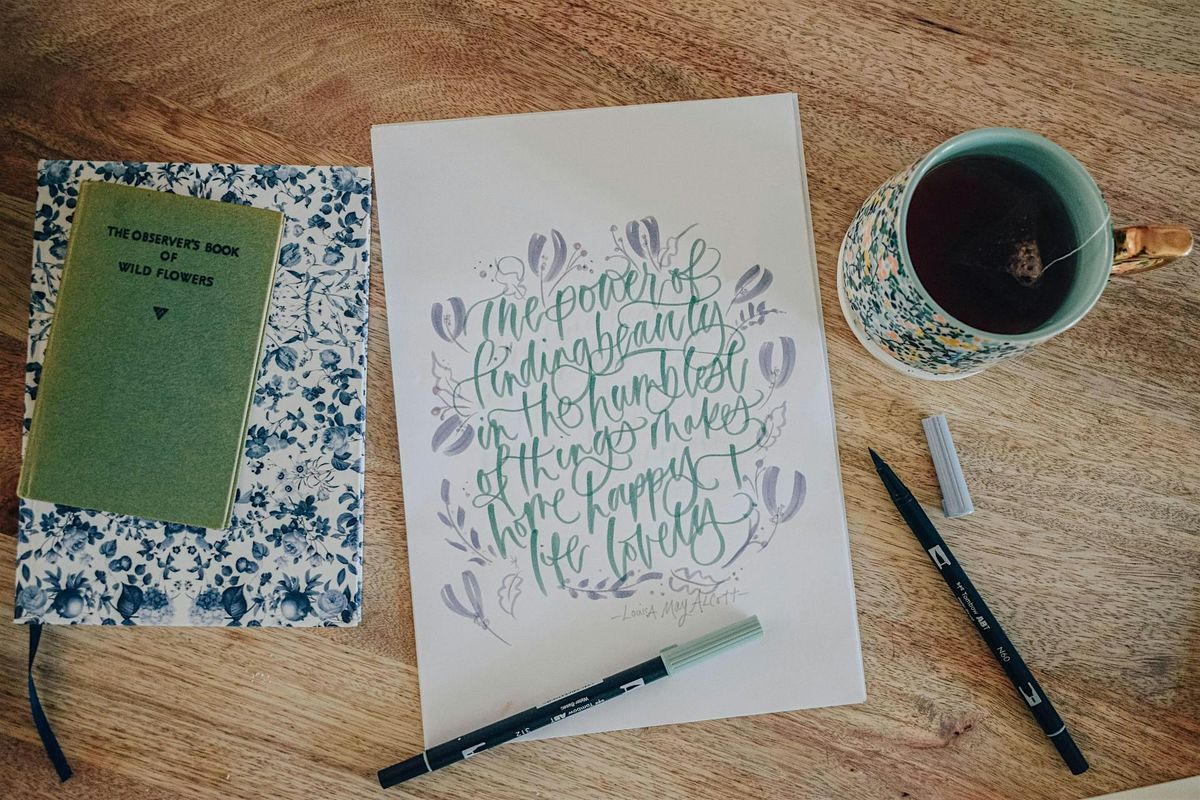 THE OBSERVER'S BOOK
OF
WILD FLOWERS
The power of
finding beauty
in the humblest
of things makes
home happy +
life lovely
-Louisa May Alcott-
Tombow ABT
N60
Water Based
Tombow ABT
312